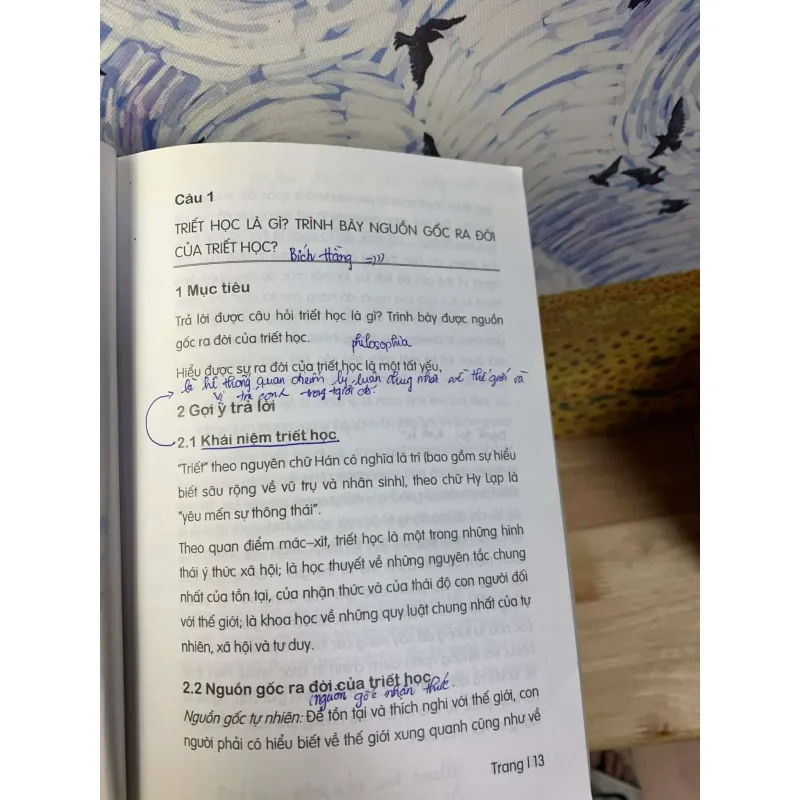 Câu 1
TRIẾT HỌC LÀ GÌ? TRÌNH BÀY NGUỒN GỐC RA ĐỜI
CỦA TRIẾT HỌC? Bích Hằng =)))
1 Mục tiêu
Trả lời được câu hỏi triết học là gì? Trình bày được nguồn
gốc ra đời của triết học.
philosophia
Hiểu được sự ra đời của triết học là một tất yếu.
là hệ thống quan điểm lý luận chung nhất về thế giới và
vị trí con trong tgiới đó.
2 Gợi ý trả lời
2.1 Khái niệm triết học
"Triết" theo nguyên chữ Hán có nghĩa là trí (bao gồm sự hiểu
biết sâu rộng về vũ trụ và nhân sinh), theo chữ Hy Lạp là
"yêu mến sự thông thái".
Theo quan điểm mác-xít, triết học là một trong những hình
thái ý thức xã hội; là học thuyết về những nguyên tắc chung
nhất của tồn tại, của nhận thức và của thái độ con người đối
với thế giới; là khoa học về những quy luật chung nhất của tự
nhiên, xã hội và tư duy.
2.2 Nguồn gốc ra đời của triết học
nguồn gốc nhận thức.
Nguồn gốc tự nhiên: Để tồn tại và thích nghi với thế giới, con
người phải có hiểu biết về thế giới xung quanh cũng như về
Trang | 13